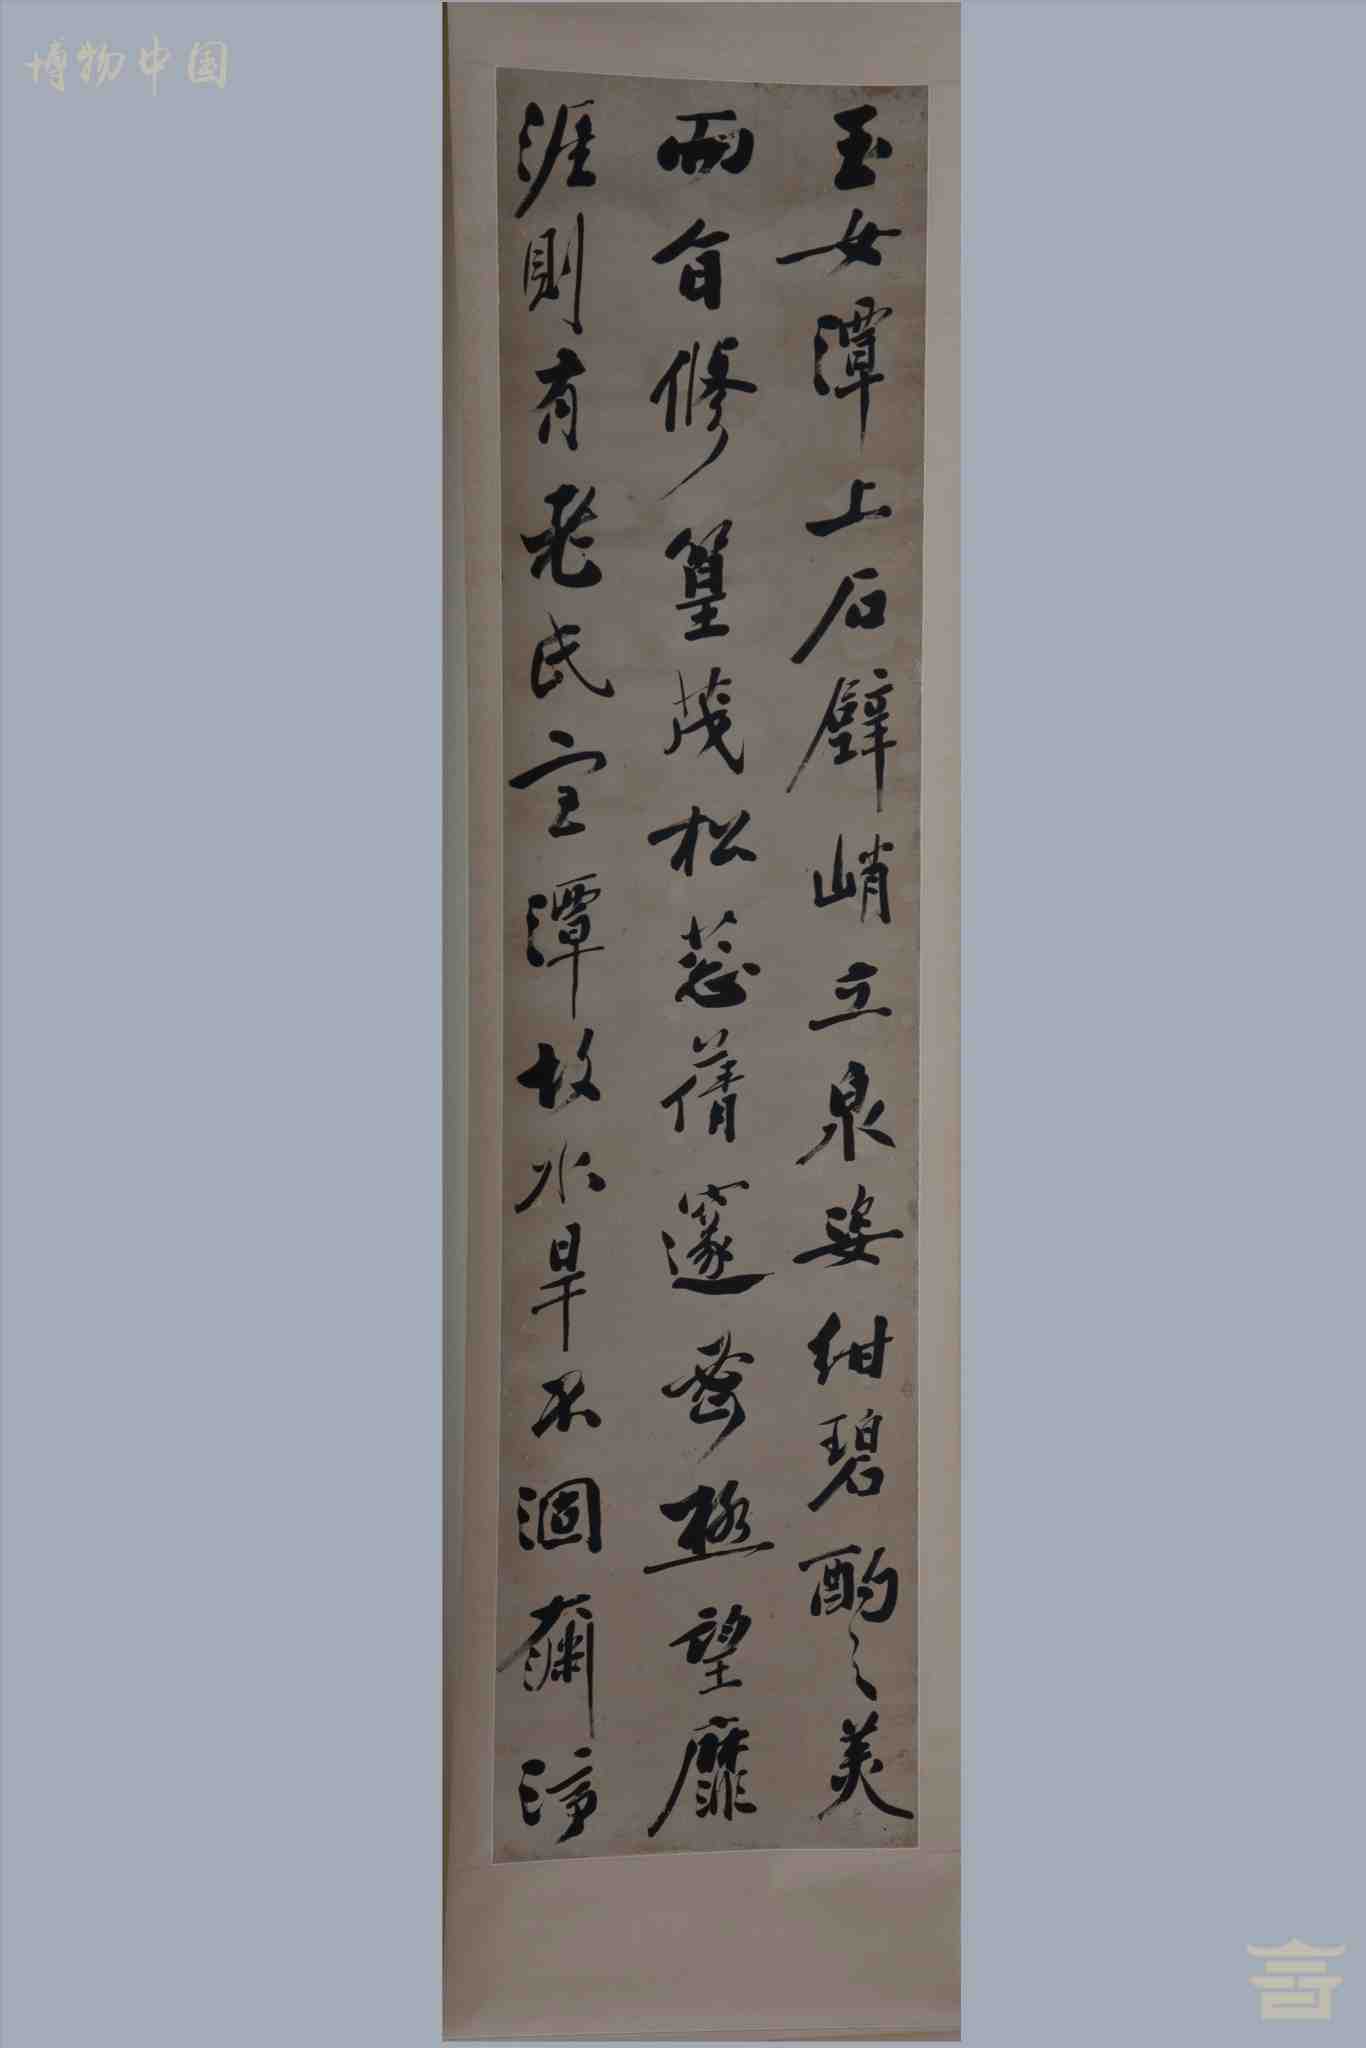 博物中国
玉女潭上石壁峭立泉姿紺碧酌之美
而旨修篁茂松葱蒨邃極望靡
涯則有老氏潭故水旱不涸奫渟